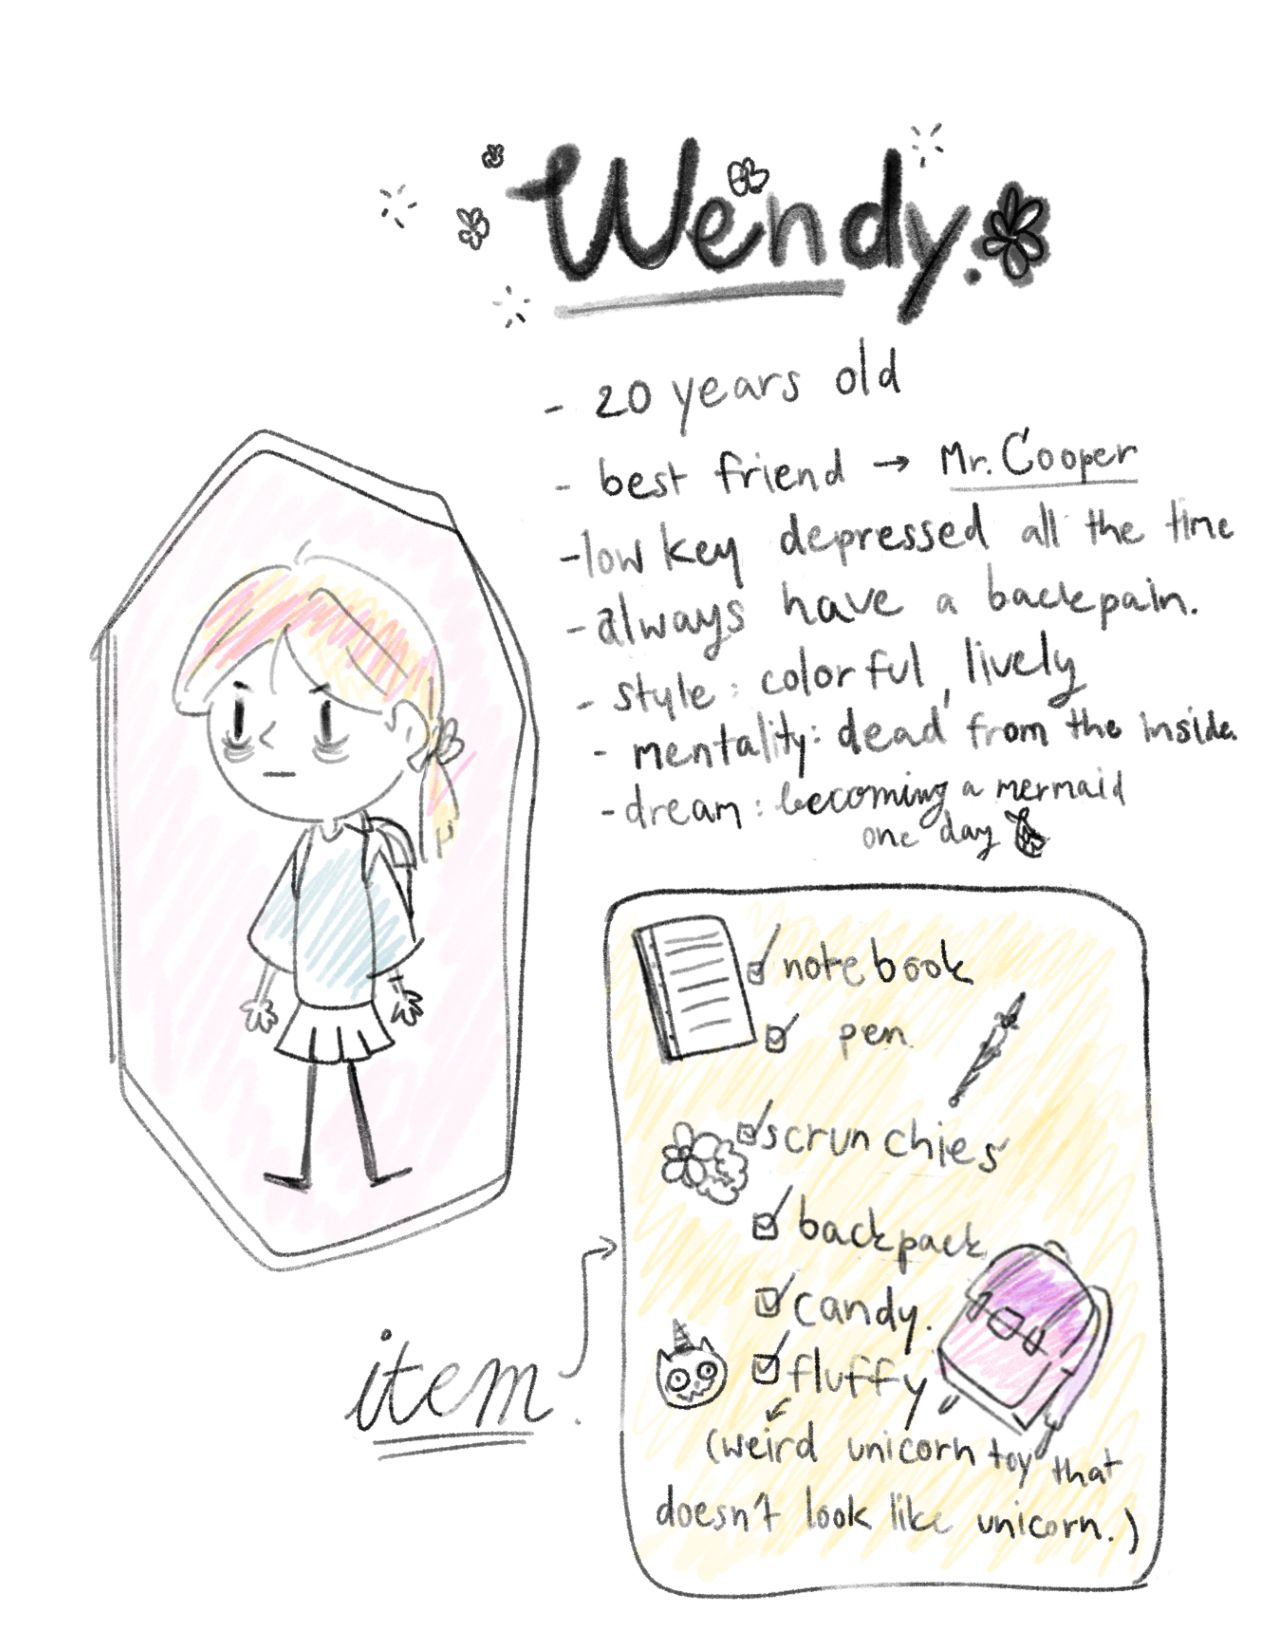 Wendy.
- 20 years old
- best friend → Mr. Cooper
- low key depressed all the time
- always have a backpain.
- style : colorful, lively
- mentality : dead from the inside.
- dream : becoming a mermaid
one day
notebook
pen
scrunchies
backpack
candy.
fluffy
(weird unicorn toy that
doesn't look like unicorn.)
item